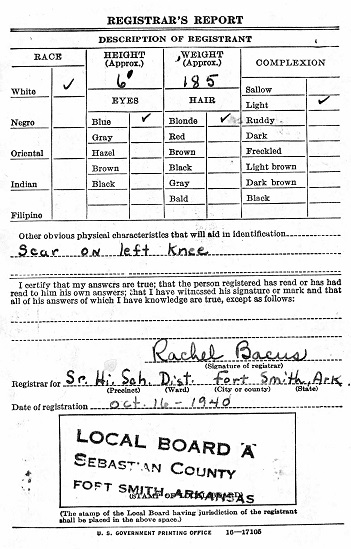 REGISTRAR'S REPORT
DESCRIPTION OF REGISTRANT
RACE
HEIGHT (Approx.)
WEIGHT (Approx.)
COMPLEXION
6'
185
White ✓
Sallow
EYES
HAIR
Light ✓
Negro
Blue ✓
Blonde ✓
Ruddy
Gray
Red
Dark
Oriental
Hazel
Brown
Freckled
Brown
Black
Light brown
Indian
Black
Gray
Dark brown
Bald
Black
Filipino
Other obvious physical characteristics that will aid in identification
Scar on left Knee
I certify that my answers are true; that the person registered has read or has had
read to him his own answers; that I have witnessed his signature or mark and that
all of his answers of which I have knowledge are true, except as follows:
Rachel Bacus
(Signature of registrar)
Registrar for Sr. Hi. Sch. Dist. Fort Smith, Ark
(Precinct) (Ward) (City or county) (State)
Date of registration Oct. 16 - 1940
LOCAL BOARD A
SEBASTIAN COUNTY
FORT SMITH, ARKANSAS
(The stamp of the Local Board having jurisdiction of the registrant
shall be placed in the above space.)
U. S. GOVERNMENT PRINTING OFFICE 16—17105